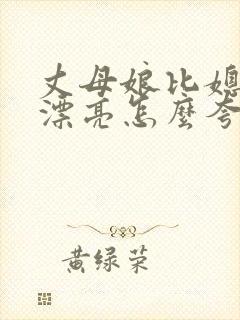 丈母娘比媳
漂亮怎麼夸
黄绿荣